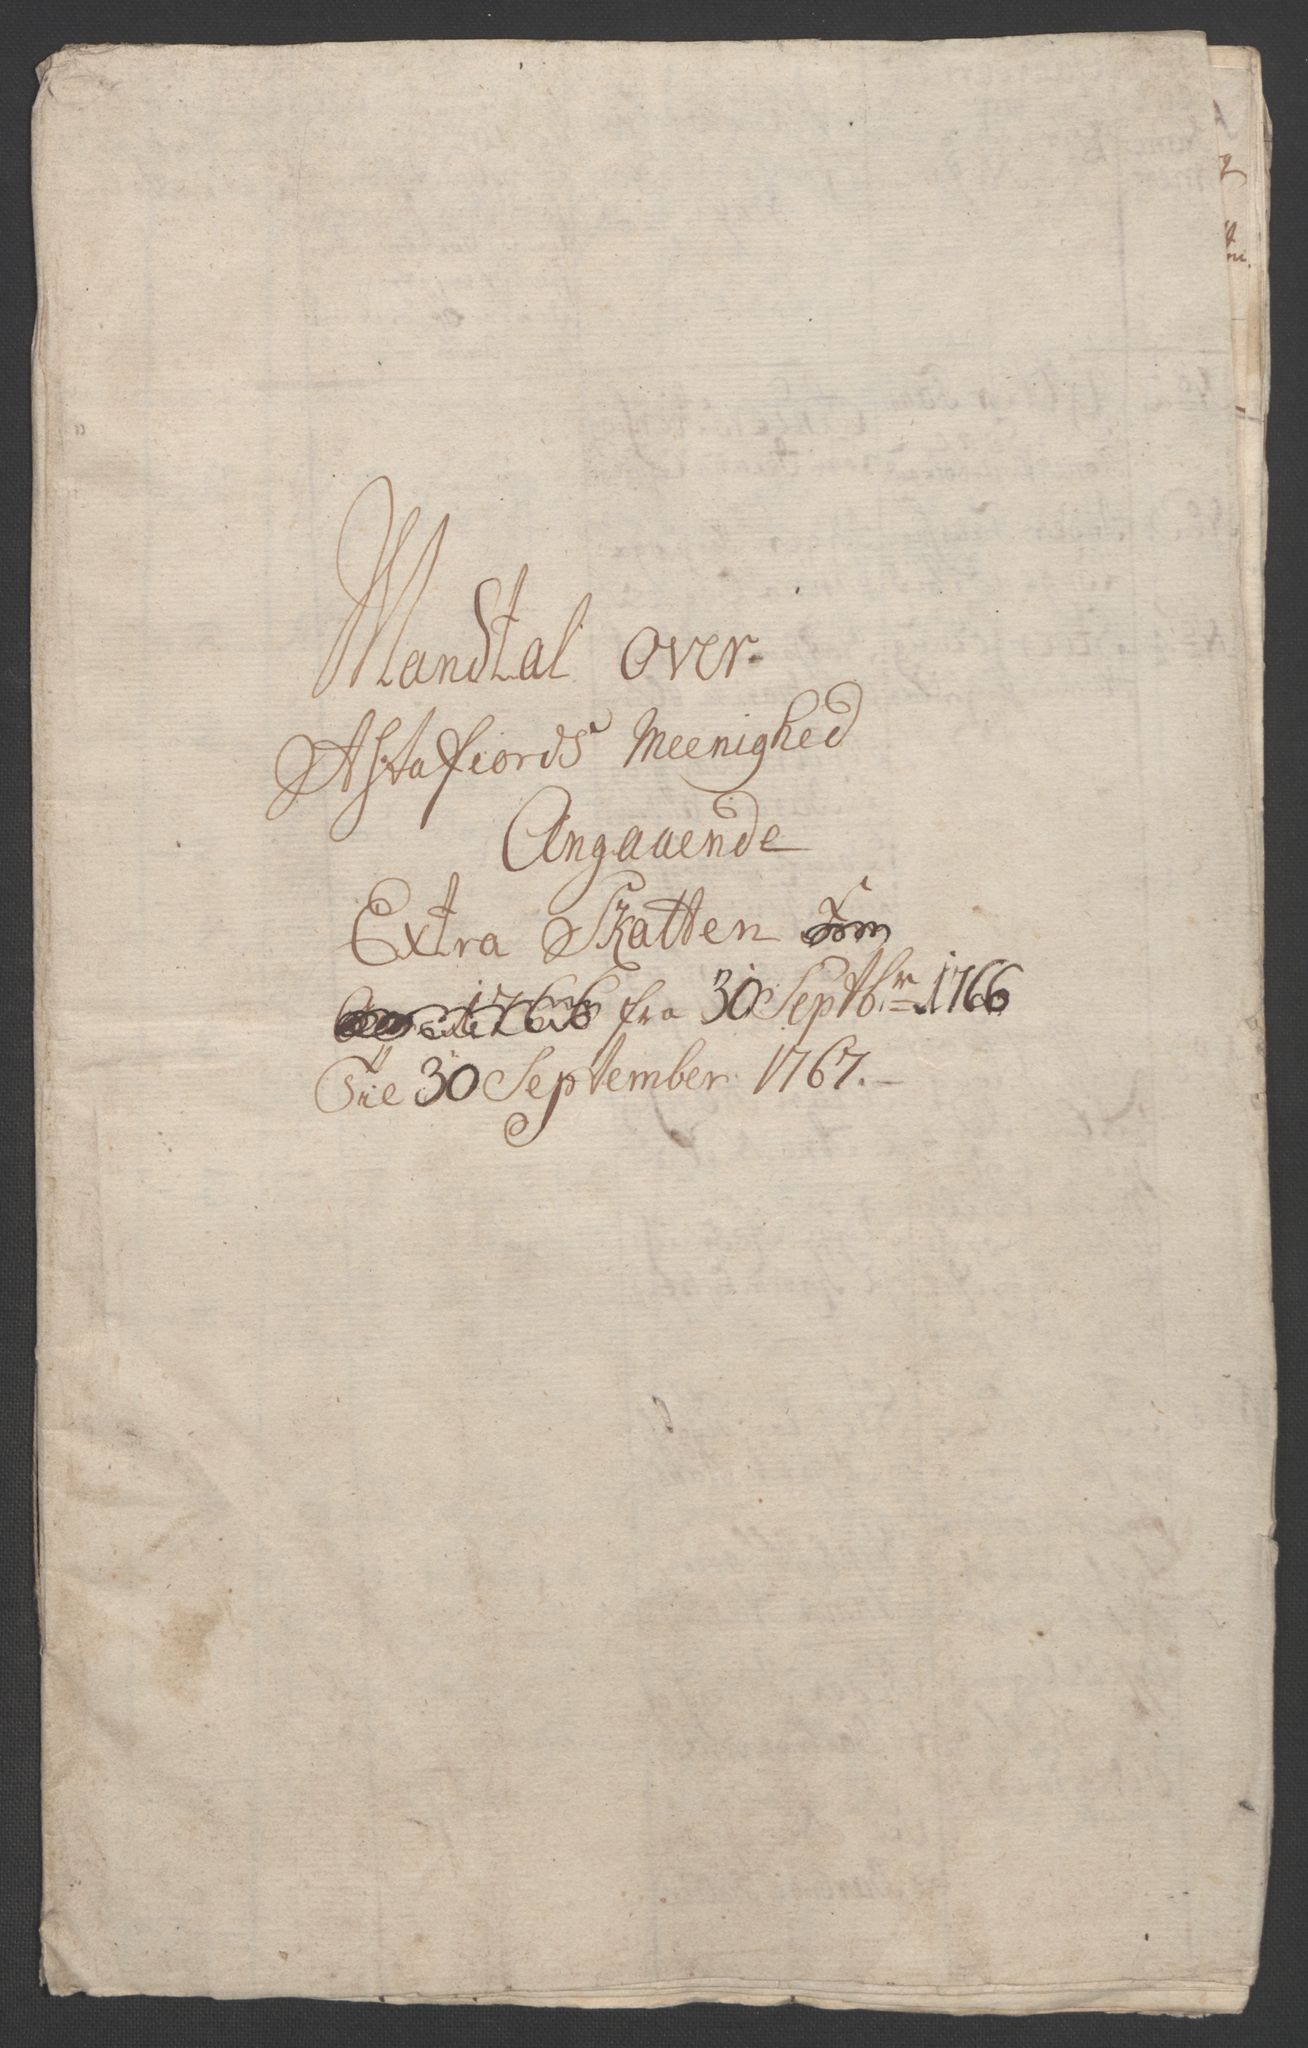 Mandtal over
Astafiords Meenighed
Angaaende
Extra Skatten som
1766 fra 30 Septbr. 1766
Til 30 September 1767.